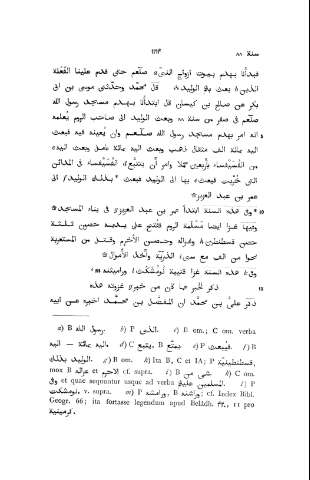 سنة ٨٨ ١١٩٤
فبدأنا بهدم بيوت ازواج النبىّ a صلّعم حتى قدم علينا الفَعَلة
الذين b بعث بهم الوليد ۞ قال محمد وحدّثنى موسى بن ابى
بكر عن صالح بن كيسان قال ابتدأنا بهدم مسجد رسول الله
صلّعم فى صفر من سنة ٨٨ وبعث الوليد الى صاحب الروم يُعلمه
انه امر بهدم مسجد رسول الله صلّعم وان يُعينه فيه فبعث
اليه مائة الف مثقال ذهب وبعث اليه بمائة عامل وبعث اليه d
من الفُسَيْفِساء باربعين حِمْلا وامر أن يتتبّع e الفُسَيْفِساء فى المدائن
التى خُرّبت فبعث f بها الى الوليد فبعث g بذلك الوليد الى
عمر بن عبد العزيز
١٠ وفى هذه السنة ابتدأ عمر بن عبد العزيز فى بناء المسجد
وفيها غزا ايضا مَسْلَمة الروم ففُتح على يديه حصون ثلثة
حصن قسطنطين h وغزالة وحصن الأَخْرم وقتل من المستعربة
نحوا من الف مع سبى i الذرّيّة وأخذ الأموال k
وفى l هذه السنة غزا قتيبة نُومُشَكَث ورامِيثَنه m
١٥ ذكر الخبر عما كان من خبر غزوته هذه
ذكر علىّ بن محمد ان المفضّل بن محمّد اخبره عن ابيه
a) B رسول الله. b) P الذى. c) B om.; C om. verba
اليه مائة — اليه. d) C يتبع, B يمتع. e) P فيبعث. f) B
الوليد بذلك. g) B om. h) Ita B, C et IA; P قسطنطينيّة,
mox B غزاله et الاحرم cf. supra. i) B شى من. k) C om.
وفى et quae sequuntur usque ad verba المسلمين عليه. l) P
نومشكت, v. supra. m) P ورامسه, B وراشنه; cf. Index Bibl.
Geogr. 66; ita fortasse legendum apud Belâdh. ٤٢٠, 11 pro
كرمينية.